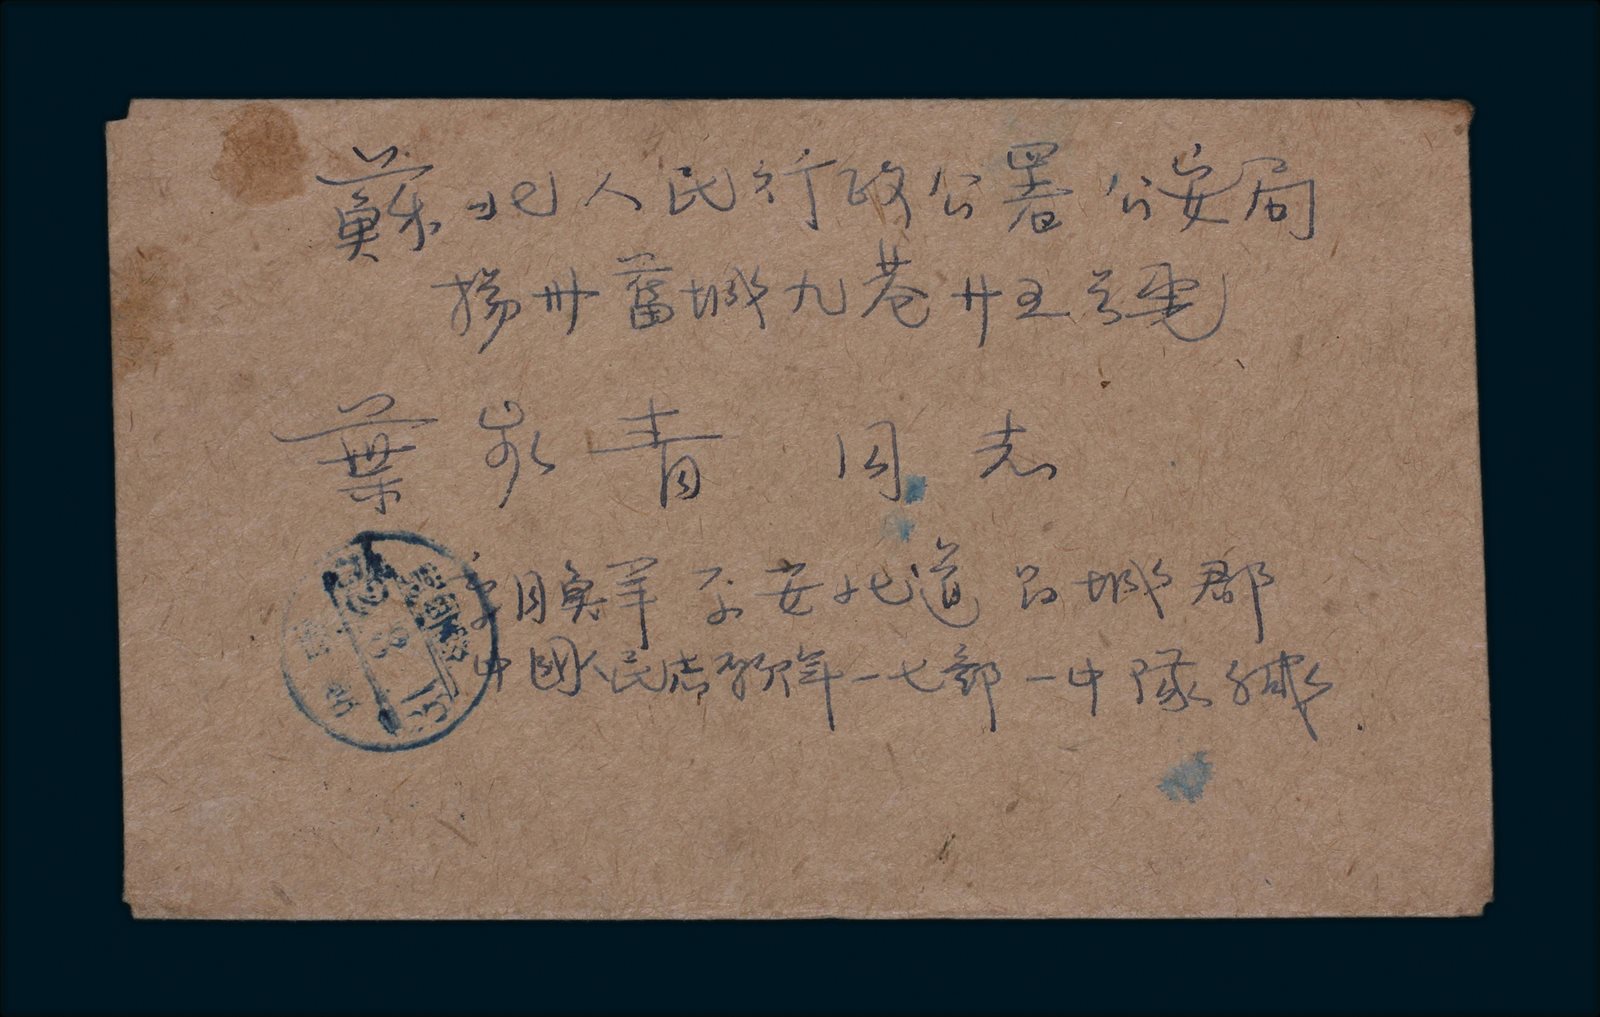 蘇北人民行政公署公安局
揚州舊城九巷廿五號
葉永青 同志
朝鮮平安北道 城郡
中國人民志願軍一七部一中隊緘